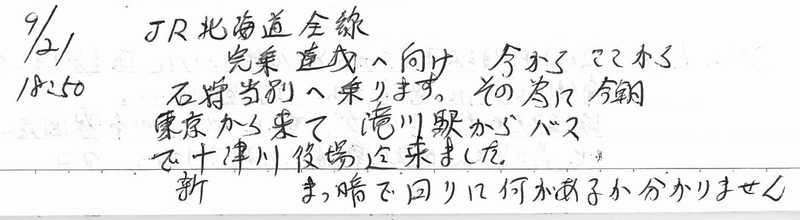 9/21
18:50
JR北海道全線
完乗達成へ向け 今から ここから
石狩当別へ乗ります。その為に今朝
東京から来て 滝川駅からバス
で十津川役場迄来ました。
新 まっ暗で回りに何があるか分かりません